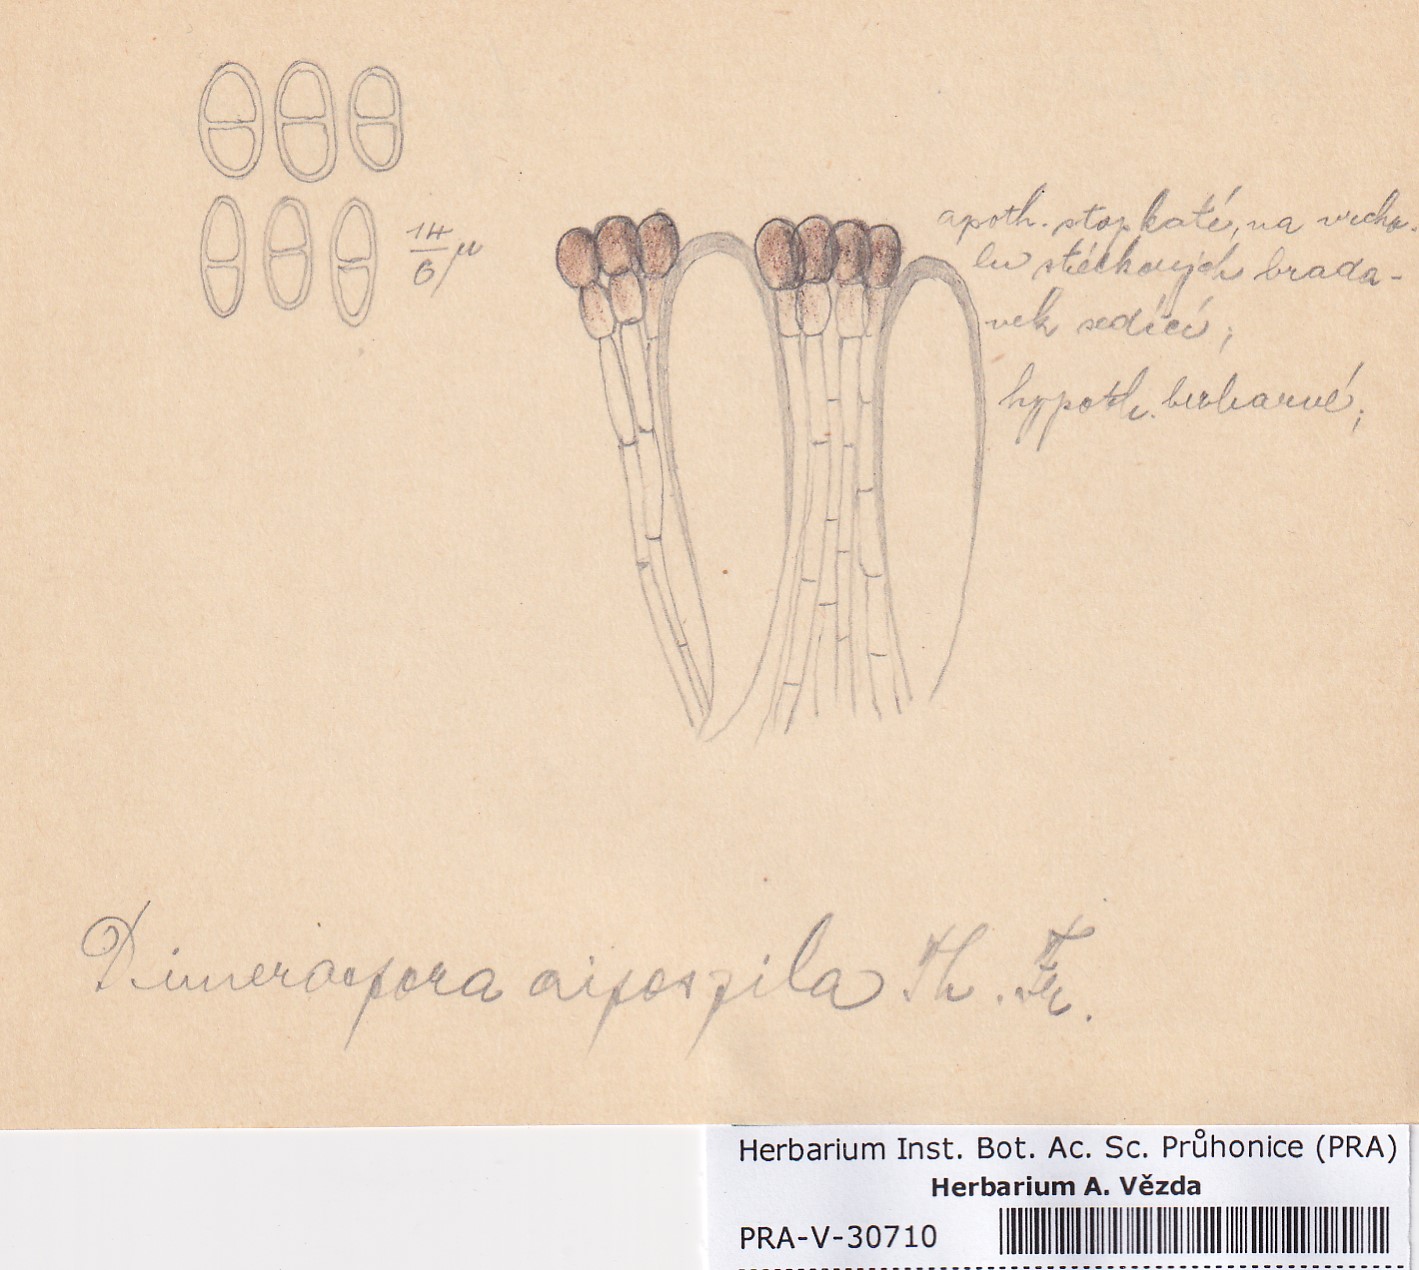 14/6 μ
apoth. stopkaté, na vrcho-
lu stélkových brada-
vek sedící;
hypoth. bezbarvé;
Dimerospora aipospila Th. Fr.
Herbarium Inst. Bot. Ac. Sc. Průhonice (PRA)
Herbarium A. Vězda
PRA-V-30710